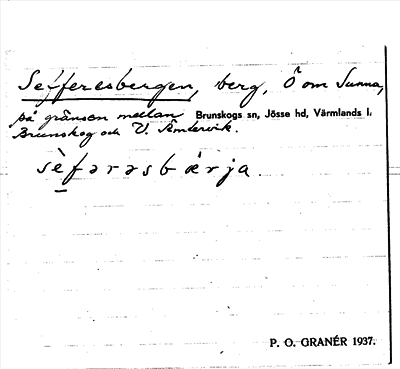 Sefferesbergen, berg, Ö om Sunna,
på gränsen mellan Brunskogs sn, Jösse hd, Värmlands l.
Brunskog och V. Ämtervik.
sèfərəsbærja.
P. O. GRANÉR 1937.